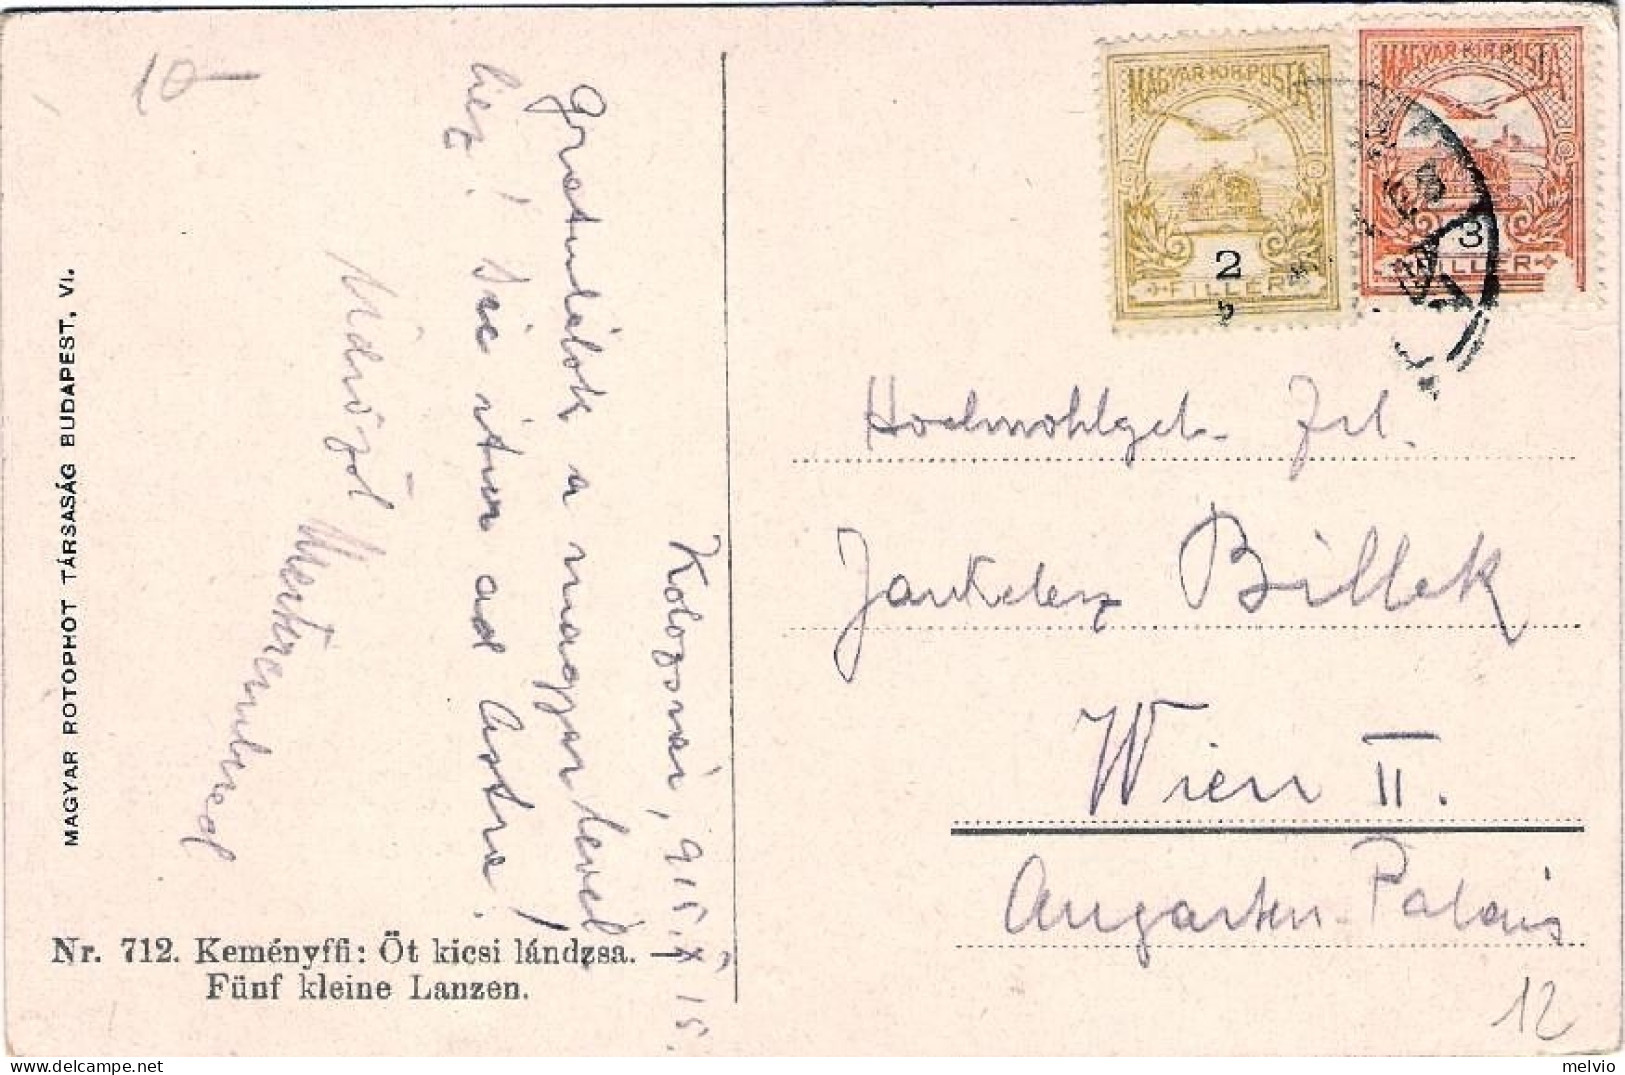 MAGYAR ROTOPHOT TÁRSASÁG BUDAPEST, VI.
10
Kolozsvár, 915. X 15.
Gratulálok a magyar level
hez! Sic itur ad astra!
Üdvözöl
Nr. 712. Keményffi: Öt kicsi lándzsa.
Fünf kleine Lanzen.
MAGYAR KIR. POSTA
2
FILLER
MAGYAR KIR. POSTA
3
FILLER
Hochwohlgeb. Frl.
Billek
Wien II.
Augarten-Palais
12
delcampe.net
melvio